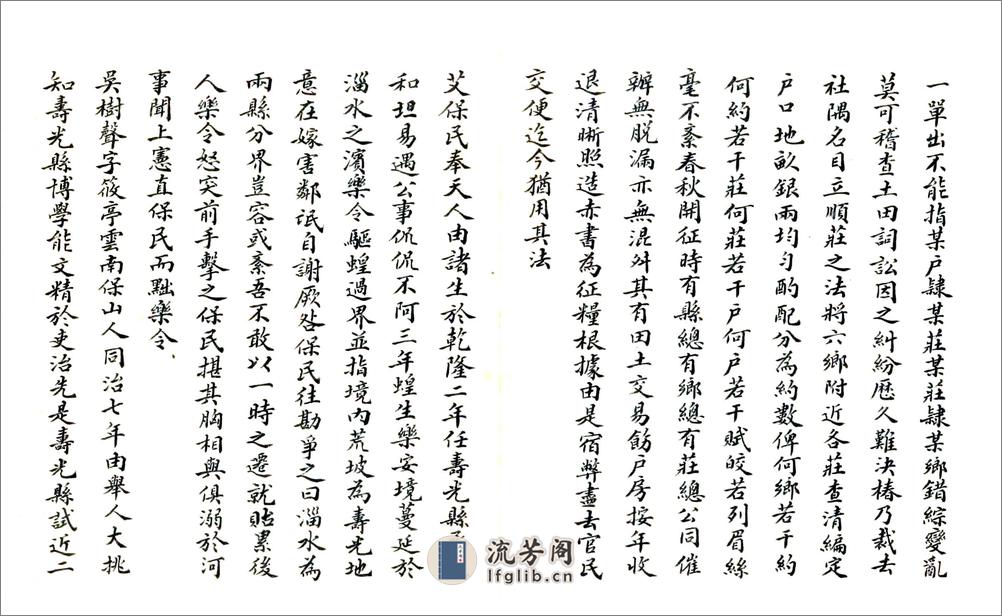 一單出不能指某戶隸某莊某莊隸某鄉錯綜變亂
莫可稽查土田詞訟因之糾紛歷久難決椿乃裁去
社隅名目立順莊之法將六鄉附近各莊查清編定
戶口地畝銀兩均勻酌配分為約數俾何鄉若干約
何約若干莊何莊若干戶何戶若干賦皎若列眉絲
毫不紊春秋開征時有縣總有鄉總有莊總公同催
辦無脫漏亦無混舛其有田土交易飭戶房按年收
退清晰照造赤書為征糧根據由是宿弊盡去官民
交便迄今猶用其法
艾保民奉天人由諸生於乾隆二年任壽光縣
和坦易遇公事侃侃不阿三年蝗生樂安境蔓延於
淄水之濱樂令驅蝗過界並指境內荒坡為壽光地
意在嫁害鄰氓自謝厥咎保民往勘爭之曰淄水為
兩縣分界豈容或紊吾不敢以一時之遷就貽累後
人樂令怒突前手擊之保民揕其胸相與俱溺於河
事聞上憲直保民而黜樂令
吳樹聲字筱亭雲南保山人同治七年由舉人大挑
知壽光縣博學能文精於吏治先是壽光縣試近二
流芳阁
lfglib.cn